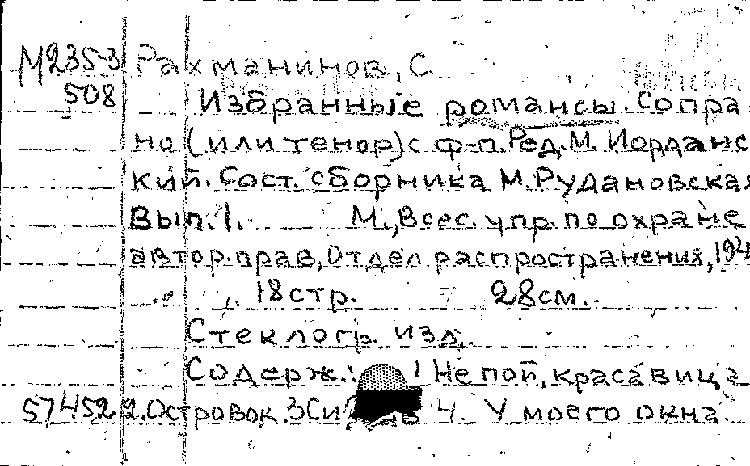 М235-3 Рахманинов, С.
508 Избранные романсы. Сопра
но (или тенор) с ф-п. Ред. М. Иорданс
кий. Сост. сборника М. Рудановская
Вып. 1. М., Всес. упр. по охране
автор. прав, Отдел распространения, 194
18 стр. 28 см.
Стеклогр. изд.
Содерж.: 1 Не пой, красавица
57452 2. Островок. 3 Си 4. У моего окна